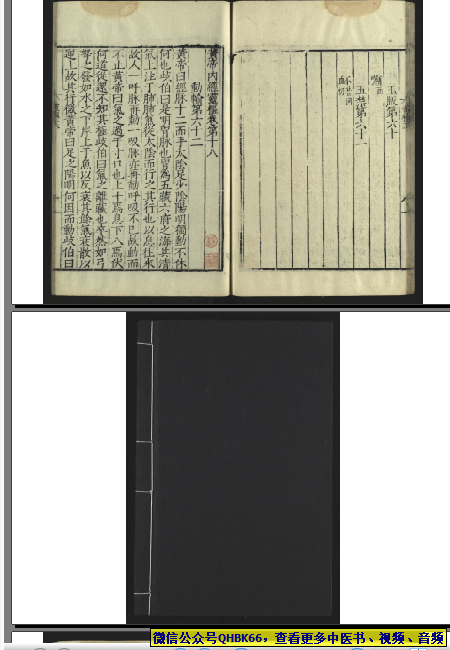 玉版第六十
五禁第六十一
黃帝內經靈樞卷第十八
動輸第六十二
黃帝曰經脉十二而手太陰足少陰陽明獨動不休
何也歧伯曰是明胃脉也胃為五藏六府之海其清
氣上注于肺肺氣從太陰而行之其行也以息往來
故人一呼脉再動一吸脉亦再動呼吸不已故動而
不止黃帝曰氣之過于寸口也上十焉息下八焉伏
何道從還不知其極歧伯曰氣之離藏也卒然如弓
弩之發如水之下岸上于魚以反衰其餘氣衰散以
逆上故其行微黃帝曰足之陽明何因而動歧伯曰
微信公众号QHBK66，查看更多中医书、视频、音频